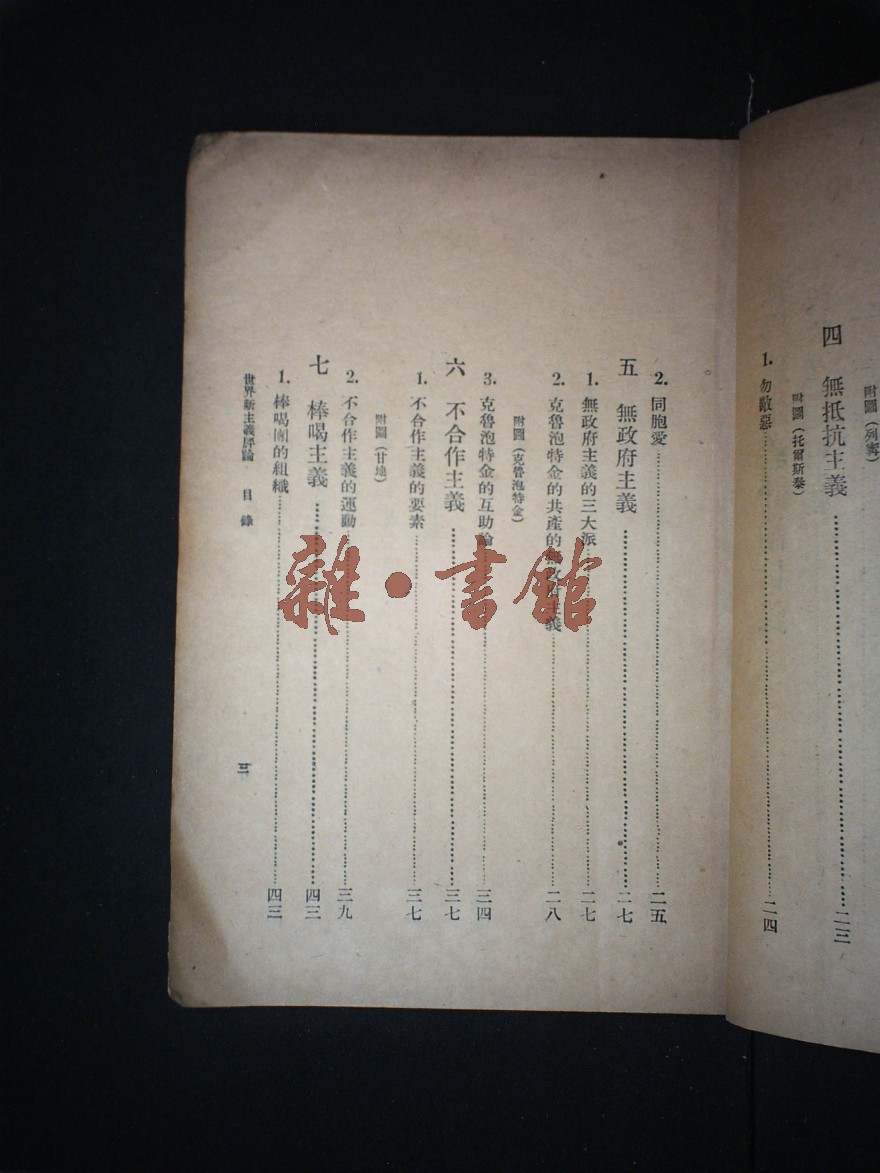 附圖（列寧）
四　無抵抗主義……二三
附圖（托爾斯泰）
1. 勿敵惡……二四
2. 同胞愛……二五
五　無政府主義……二七
1. 無政府主義的三大派……二七
2. 克魯泡特金的共產的無政府主義……二八
附圖（克魯泡特金）
3. 克魯泡特金的互助論……三四
六　不合作主義……三七
1. 不合作主義的要素……三七
附圖（甘地）
2. 不合作主義的運動……三九
七　棒喝主義……四三
1. 棒喝團的組織……四三
世界新主義評論　目錄
三
雜·書館